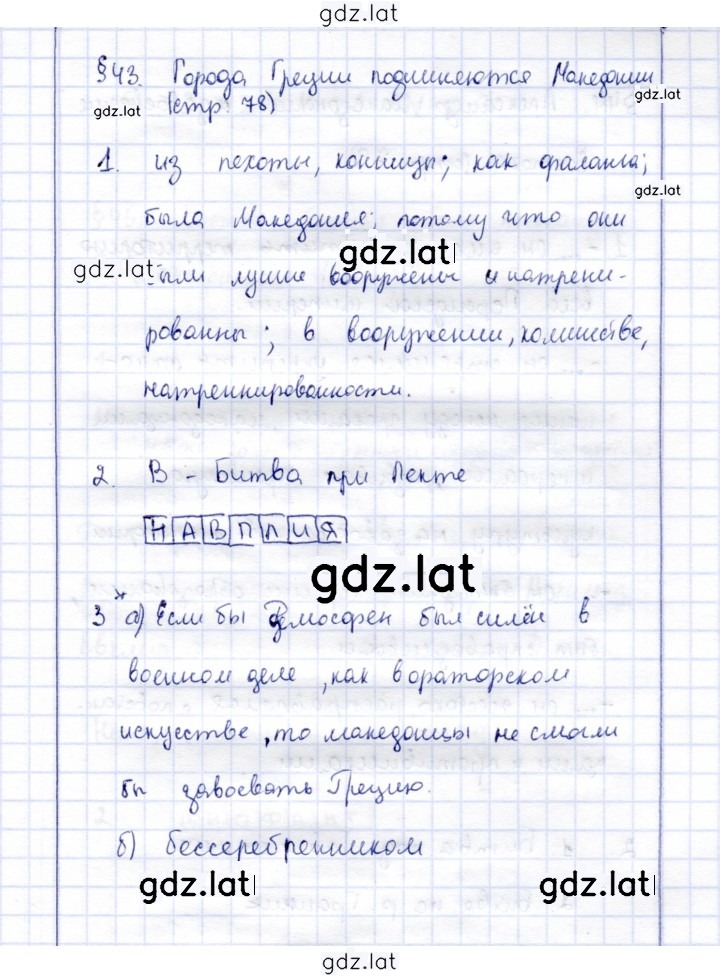 gdz.lat
§ 43. Города Греции подчиняются Македонии
gdz.lat (стр. 78) gdz.lat
1. из пехоты, конницы; как фаланга;
gdz.lat
была Македония; потому что они
gdz.lat gdz.lat
были лучше вооружены и натрени-
рованны; в вооружении, количестве,
натреннированности.
2. В - Битва при Пекте
НАВПЛИЯ
gdz.lat
3* а) Если бы Демосфен был силён в
военном деле, как в ораторском
искусстве, то македонцы не смогли
бы завоевать Грецию.
б) бессеребренником
gdz.lat gdz.lat
gdz.lat